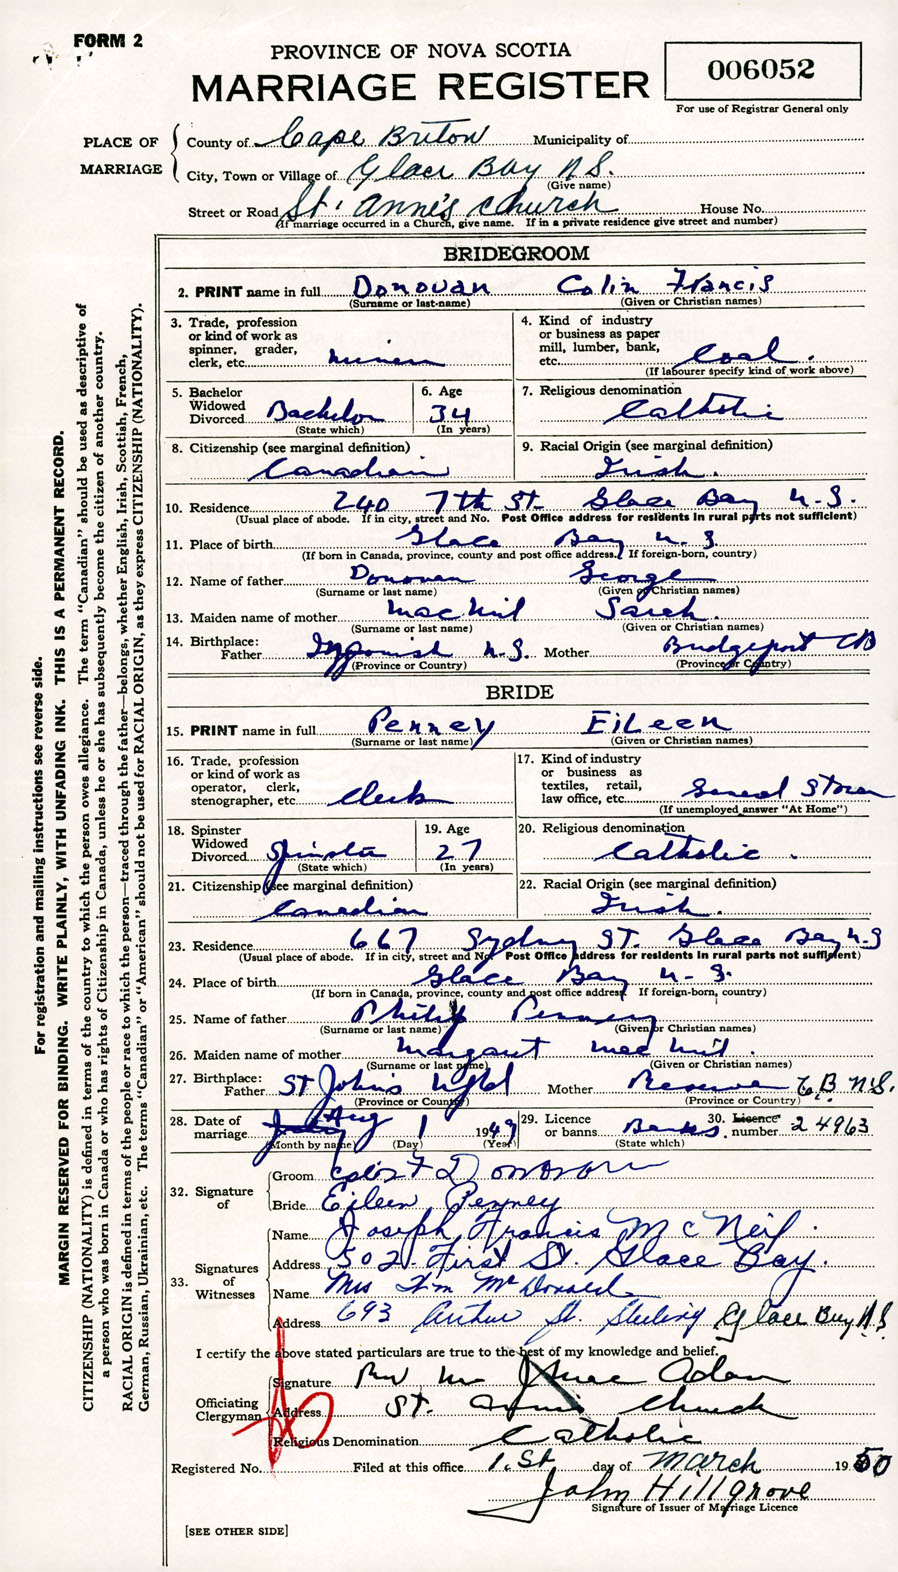 FORM 2
PROVINCE OF NOVA SCOTIA
MARRIAGE REGISTER
006052
For use of Registrar General only
PLACE OF MARRIAGE
County of Cape Briton Municipality of
City, Town or Village of Glace Bay N.S.
(Give name)
Street or Road St. Anne's Church House No.
(If marriage occurred in a Church, give name. If in a private residence give street and number)
BRIDEGROOM
2. PRINT name in full Donovan Colin Francis
(Surname or last-name) (Given or Christian names)
3. Trade, profession or kind of work as spinner, grader, clerk, etc. miner
4. Kind of industry or business as paper mill, lumber, bank, etc. Coal.
(If labourer specify kind of work above)
5. Bachelor Widowed Divorced Bachelor
(State which)
6. Age 34
(In years)
7. Religious denomination
Catholic
8. Citizenship (see marginal definition)
Canadian
9. Racial Origin (see marginal definition)
Irish.
10. Residence 240 7th St. Glace Bay N.S.
(Usual place of abode. If in city, street and No. Post Office address for residents in rural parts not sufficient)
11. Place of birth Glace Bay N.S
(If born in Canada, province, county and post office address. If foreign-born, country)
12. Name of father Donovan George
(Surname or last name) (Given or Christian names)
13. Maiden name of mother Mac Neil Sarah.
(Surname or last name) (Given or Christian names)
14. Birthplace: Father Ingonish N.S. Mother Bridgeport CB
(Province or Country) (Province or Country)
BRIDE
15. PRINT name in full Penney EiLeen
(Surname or last name) (Given or Christian names)
16. Trade, profession or kind of work as operator, clerk, stenographer, etc. Clerk
17. Kind of industry or business as textiles, retail, law office, etc. General Store
(If unemployed answer "At Home")
18. Spinster Widowed Divorced Spinster
(State which)
19. Age 27
(In years)
20. Religious denomination
Catholic.
21. Citizenship (see marginal definition)
Canadian
22. Racial Origin (see marginal definition)
Irish.
23. Residence 667 Sydney ST. Glace Bay N.S
(Usual place of abode. If in city, street and No. Post Office address for residents in rural parts not sufficient)
24. Place of birth Glace Bay N.S.
(If born in Canada, province, county and post office address. If foreign-born, country)
25. Name of father Philip Penney
(Surname or last name) (Given or Christian names)
26. Maiden name of mother Margaret Mac Neil.
(Surname or last name) (Given or Christian names)
27. Birthplace: Father St John's Nfld Mother Reserve C.B. N.S.
(Province or Country) (Province or Country)
28. Date of marriage Aug 1 1949
(Month by name) (Day) (Year)
29. Licence or banns Banns.
(State which)
30. Licence number 24963
32. Signature of
Groom Colin F Donovan
Bride Eileen Penney
33. Signatures of Witnesses
Name Joseph Francis McNeil.
Address 502 First St. Glace Bay.
Name Mrs Wm McDonald
Address 693 Arthur St. Sterling Glace Bay N.S
I certify the above stated particulars are true to the best of my knowledge and belief.
Officiating Clergyman
Signature Rev
Address St. Anne's Church
Religious Denomination Catholic
Registered No. Filed at this office 1.st day of March 1950
John Hillgrove
Signature of Issuer of Marriage Licence
[SEE OTHER SIDE]
For registration and mailing instructions see reverse side.
MARGIN RESERVED FOR BINDING. WRITE PLAINLY, WITH UNFADING INK. THIS IS A PERMANENT RECORD.
CITIZENSHIP (NATIONALITY) is defined in terms of the country to which the person owes allegiance. The term "Canadian" should be used as descriptive of
a person who was born in Canada or who has rights of Citizenship in Canada, unless he or she has subsequently become the citizen of another country.
RACIAL ORIGIN is defined in terms of the people or race to which the person—traced through the father—belongs, whether English, Irish, Scottish, French,
German, Russian, Ukrainian, etc. The terms "Canadian" or "American" should not be used for RACIAL ORIGIN, as they express CITIZENSHIP (NATIONALITY).